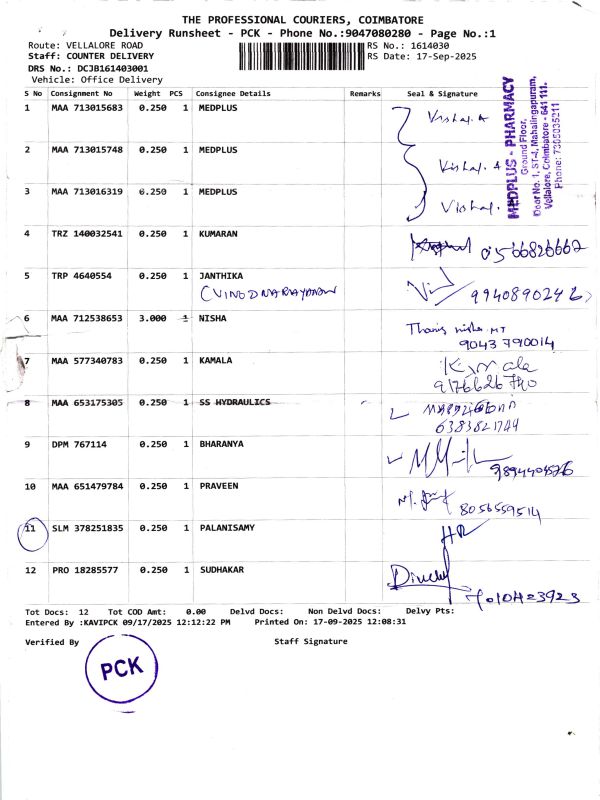 THE PROFESSIONAL COURIERS, COIMBATORE
Delivery Runsheet - PCK - Phone No.:9047080280 - Page No.:1
Route: VELLALORE ROAD
RS No.: 1614030
Staff: COUNTER DELIVERY
RS Date: 17-Sep-2025
DRS No.: DCJB161403001
Vehicle: Office Delivery
S No Consignment No Weight PCS Consignee Details Remarks Seal & Signature
1 MAA 713015683 0.250 1 MEDPLUS Vishal. A
2 MAA 713015748 0.250 1 MEDPLUS Vishal. A
3 MAA 713016319 0.250 1 MEDPLUS Vishal.
MEDPLUS - PHARMACY
Ground Floor,
Door No. 1, ST-4, Mahalingapuram,
Vellalore, Coimbatore - 641 111.
Phone: 7305035211
4 TRZ 140032541 0.250 1 KUMARAN
5 TRP 4640554 0.250 1 JANTHIKA
6 MAA 712538653 3.000 1 NISHA
9043790014
7 MAA 577340783 0.250 1 KAMALA Kamala
8 MAA 653175305 0.250 1 SS HYDRAULICS
9 DPM 767114 0.250 1 BHARANYA
10 MAA 651479784 0.250 1 PRAVEEN
8056559514
11 SLM 378251835 0.250 1 PALANISAMY
12 PRO 18285577 0.250 1 SUDHAKAR
Tot Docs: 12 Tot COD Amt: 0.00 Delvd Docs: Non Delvd Docs: Delvy Pts:
Entered By :KAVIPCK 09/17/2025 12:12:22 PM Printed On: 17-09-2025 12:08:31
Verified By Staff Signature
PCK